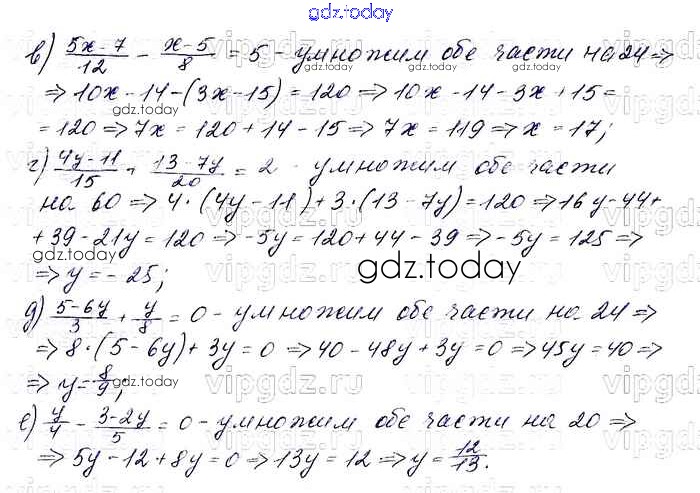 gdz.today
в) (5x-7)/12 - (x-5)/8 = 5 - умножим обе части на 24 ⇒
⇒ 10x - 14 - (3x - 15) = 120 ⇒ 10x - 14 - 3x + 15 =
= 120 ⇒ 7x = 120 + 14 - 15 ⇒ 7x = 119 ⇒ x = 17;
г) (4y-11)/15 + (13-7y)/20 = 2 - умножим обе части
на 60 ⇒ 4·(4y - 11) + 3·(13 - 7y) = 120 ⇒ 16y - 44 +
+ 39 - 21y = 120 ⇒ -5y = 120 + 44 - 39 ⇒ -5y = 125 ⇒
⇒ y = - 25;
gdz.today
д) (5-6y)/3 + y/8 = 0 - умножим обе части на 24 ⇒
⇒ 8·(5 - 6y) + 3y = 0 ⇒ 40 - 48y + 3y = 0 ⇒ 45y = 40 ⇒
⇒ y = 8/9;
е) y/4 - (3-2y)/5 = 0 - умножим обе части на 20 ⇒
⇒ 5y - 12 + 8y = 0 ⇒ 13y = 12 ⇒ y = 12/13.